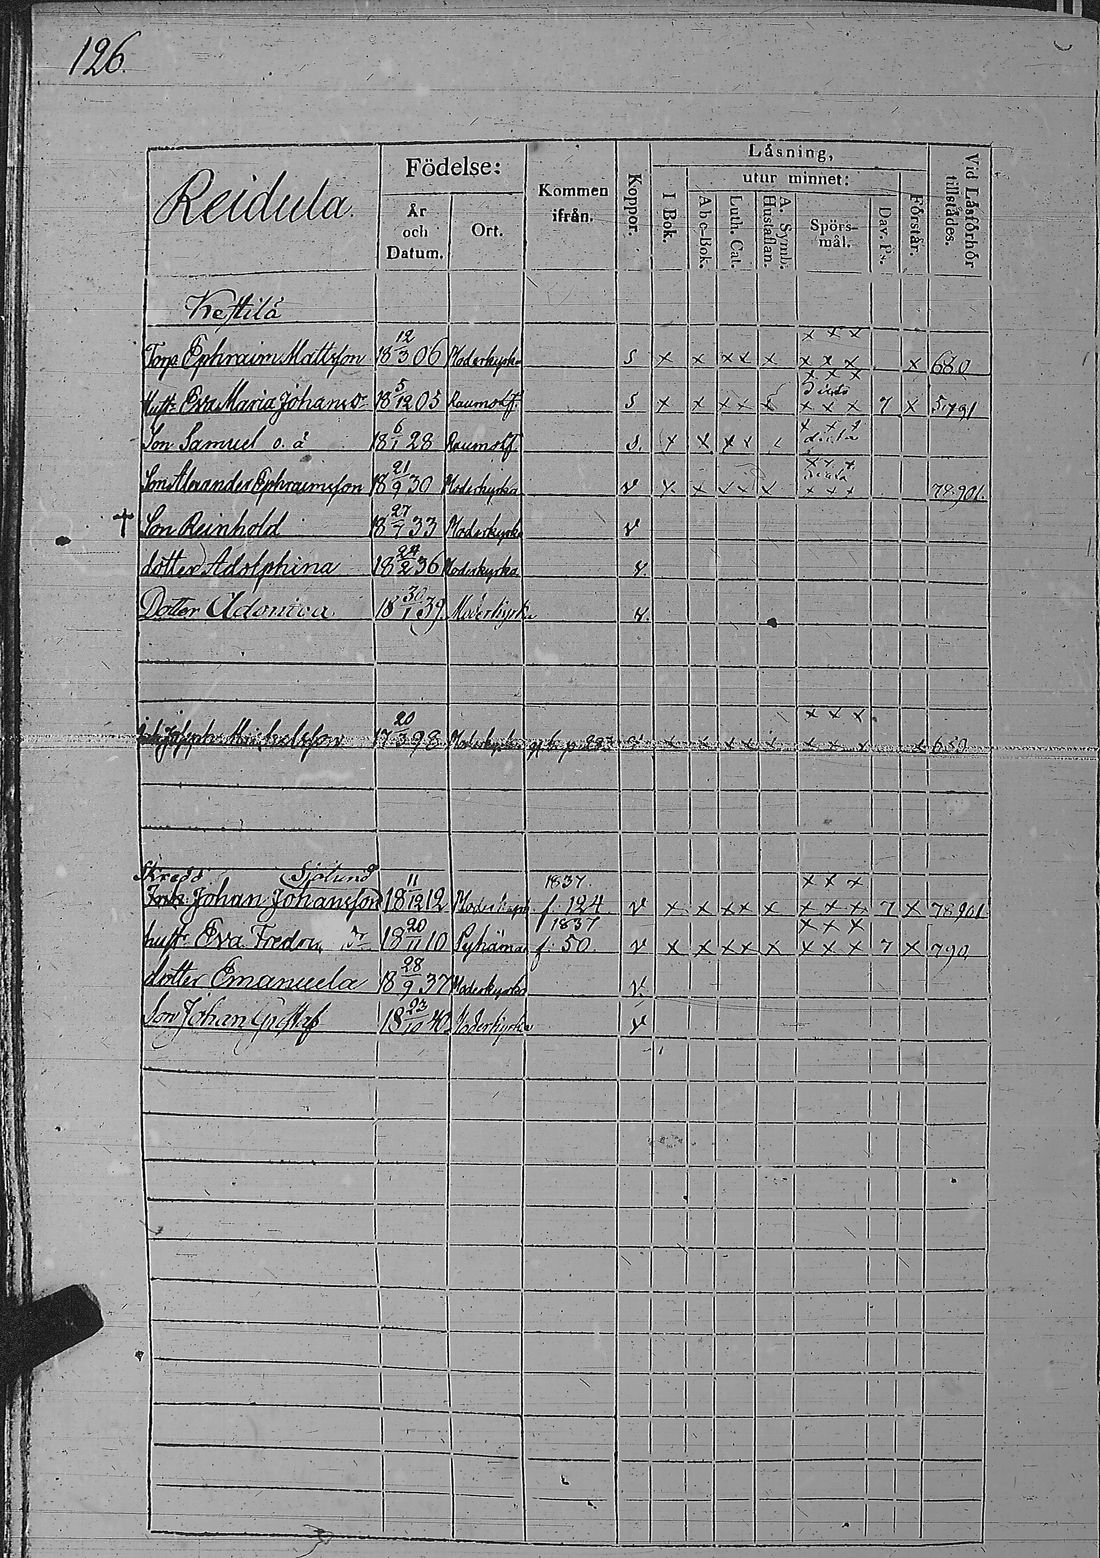 126.
Reidula.
Födelse:
År och Datum.
Ort.
Kommen ifrån.
Koppor.
Läsning,
I Bok.
utur minnet:
Abc-Bok.
Luth. Cat.
A. Symb. Hustaflan.
Spörsmål.
Dav. Ps.
Förstår.
Vid Läsförhör tillstädes.
Kettilä
x x x
Torp Ephraim Mattsson 18 12/3 06 Moderkyrka s x x x x x x x x x 680
x x x
Hustr Eva Maria Johansdr 18 5/12 05 Raumo lf. s x x x x x x x x 7 x 5791
Son Samuel o. ä 18 6/1 28 Raumo lf. s. x x x x
Son Alexander Ephraimsson 18 21/9 30 Moderkyrka v x x x x x x x x 78901.
† Son Reinhold 18 27/9 33 Moderkyrka v
dotter Adolphina 18 24/2 36 Moderkyrka v.
Dotter Adamina 18 30/1 39. Moderkyrka v.
x x x
Michelsson 17 20/3 98 Moderkyrka v x x x x x x x x x 680
Skredd Sjölund 1837. x x x
Johan Johansson 18 11/12 12 Moderkyrk f. 124 v x x x x x x x x 7 x 78901
1837 x x x
hustr Eva Fredr dr 18 20/11 10 Pyhäma f. 50. v x x x x x x x x 7 x 790,
dotter Emanuela 18 28/9 37 Moderkyrka v.
Son Johan Gustaf 18 23/10 40. Moderkyrka v